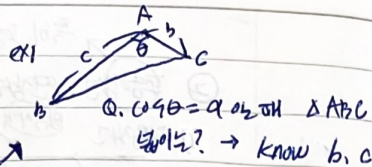 A
ex1
c
b
θ
C
B
Q. cosθ = a 일 때 △ABC
넓이는? → know b, c